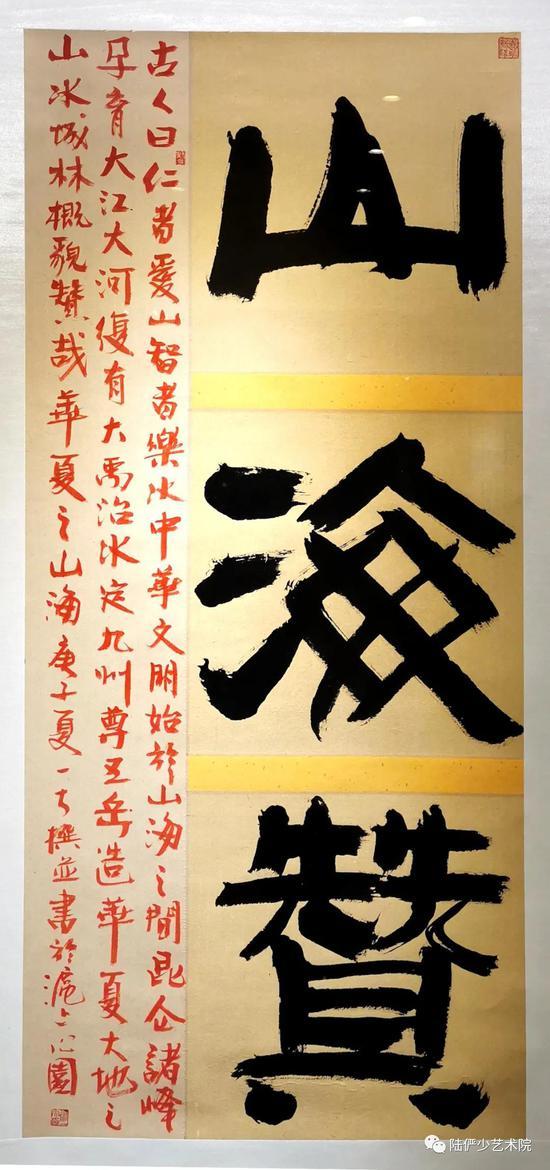 山海贊
古人曰仁者愛山智者樂水中華文明始於山海之間昆仑諸峰
孕育大江大河復有大禹治水定九州尊五岳造華夏大地之
山水城林概貌贊哉華夏之山海庚子夏一撰並書於滬上心園
陆俨少艺术院